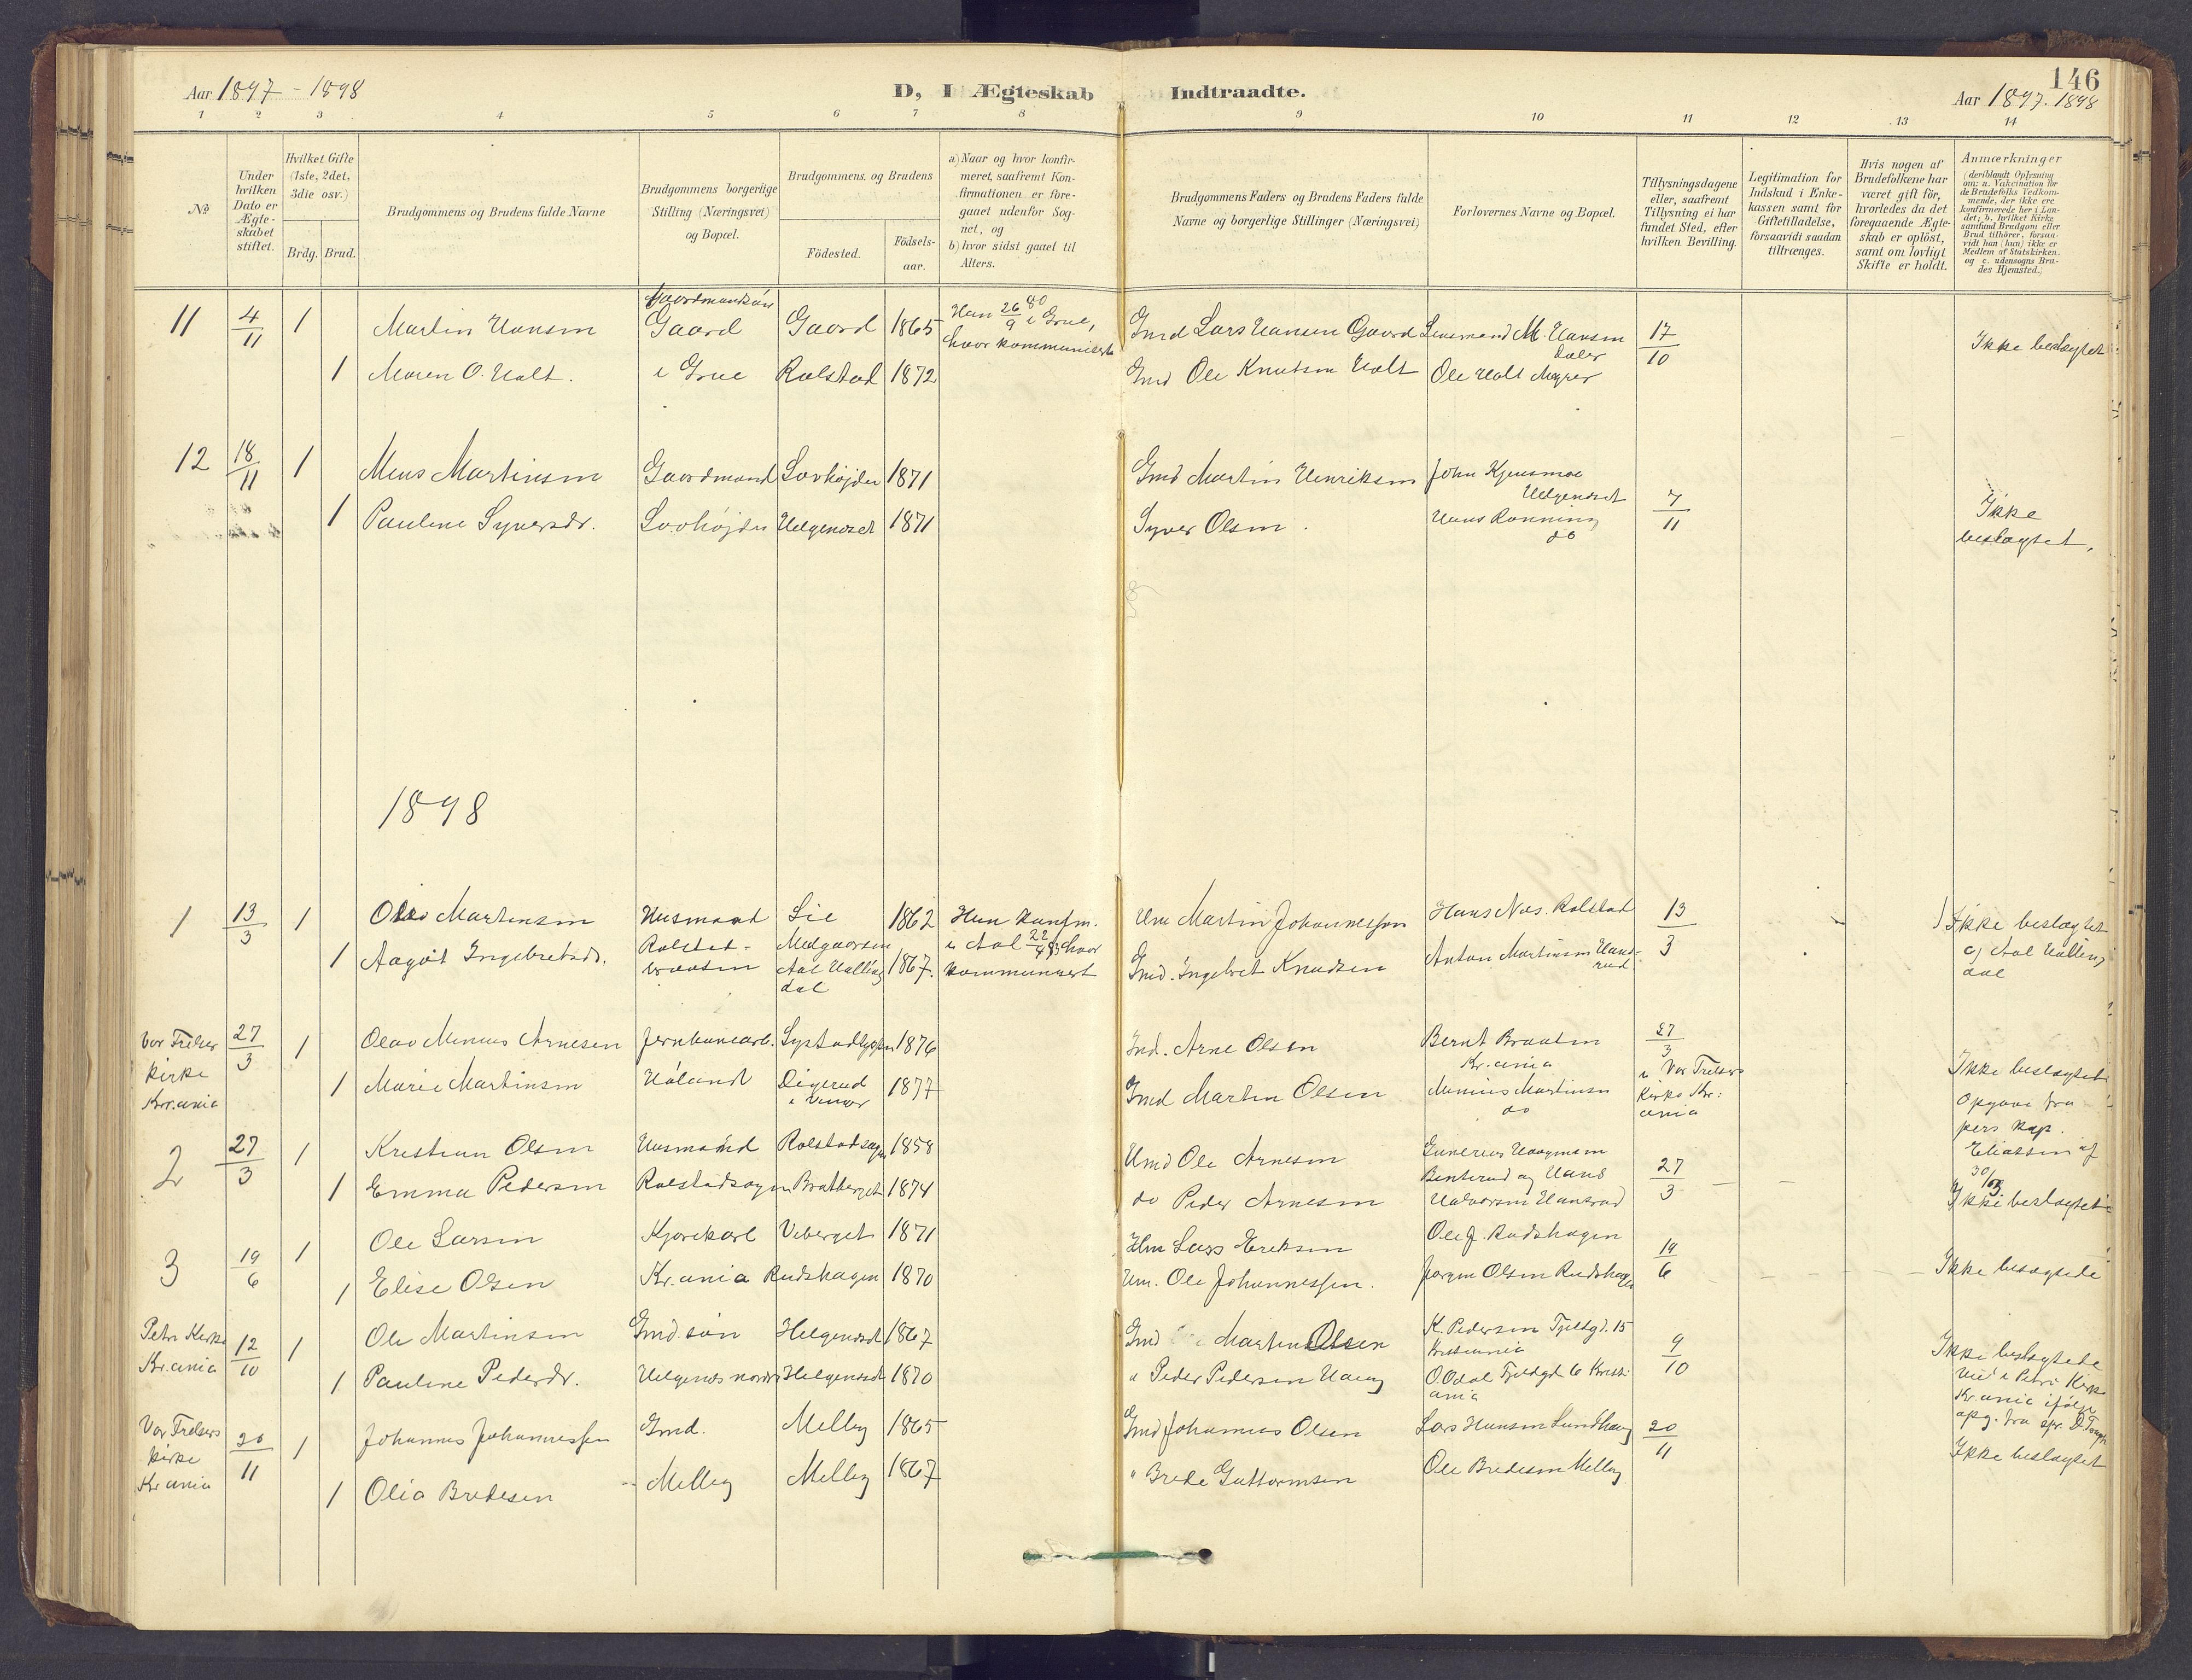 Aar 1897 - 1898
D, I Ægteskab Indtraadte.
146
Aar 1897. 1898
1 2 3 4 5 6 7 8 9 10 11 12 13 14
№
Under hvilken Dato er Ægteskabet stiftet.
Hvilket Gifte (1ste, 2det, 3die osv.)
Brdg. Brud.
Brudgommens og Brudens fulde Navne
Brudgommens borgerlige Stilling (Næringsvei) og Bopæl.
Brudgommens og Brudens
Födested.
Födselsaar.
a) Naar og hvor konfirmeret, saafremt Konfirmationen er foregaaet udenfor Sognet, og
b) hvor sidst gaaet til Alters.
Brudgommens Faders og Brudens Faders fulde Navne og borgerlige Stillinger (Næringsvei)
Forlovernes Navne og Bopæl.
Tillysningsdagene eller, saafremt Tillysning ei har fundet Sted, efter hvilken Bevilling.
Legitimation for Indskud i Enkekassen samt for Giftetilladelse, forsaavidt saadan tiltrænges.
Hvis nogen af Brudefolkene har været gift för, hvorledes da det foregaaende Ægteskab er oplöst, samt om lovligt Skifte er holdt.
Anmærkninger (deriblandt Oplysning om: a. Vakcination for de Brudefolks Vedkommende, der ikke ere konfirmerede her i Landet; b. hvilket Kirkesamfund Brudgom eller Brud tilhörer, forsaavidt han (hun) ikke er Medlem af Statskirken. og c. udensogns Brudes Hjemsted.)
11 4/11 1 Martin Hansen Gaardmandssøn Gaard Gaard 1865 Han 26/9 80 i Grue, hvor kommuniseret Gmd Lars Hansen Gaard Lensmand M. Hansen Daler 17/10 Ikke beslægtet
1 Maren O. Holt. i Grue Rolstad 1872 Gmd Ole Knutsen Holt Ole Holt
12 18/11 1 Mens Martinsen Gaardmand Lovhøjden 1871 Gmd Martin Henriksen John Kjensmoe Helgeneset 7/11 Ikke beslægtet,
1 Pauline Syversdr. Lovhøjden Helgeneset 1871 Syver Olsen. Hans Rønning do
1898
1 13/3 1 Olav Martinsen Husmand Lie 1862 Hun konfm. Hm Martin Johannessen Hans Næs. Rolstad 13/3 Ikke beslægtet
1 Aagot Ingebretsdr. Rolstad- Aal Hallingdal 1867. i Aal 22/4 83 hvor kommunisert Gmd. Ingebret Knudsen Anton Martinsen c) Aal Hallingdal
Vor Frelser kirke Kr.ania 27/3 1 Olav Arnesen Jernbanearb. 1876 Ind. Arne Olsen Bernt Braaten Kr.ania 27/3 i Vor Frelsers Kirke Kr:ania Ikke beslægtet
1 Marie Martinsen Haland Digerud i Vinger 1877 Gmd Martin Olsen Martinsen do Opgave fra pers kap. Eliassen af 30/3
2 27/3 1 Kristian Olsen Husmand Rolstadsagen 1858 Hmd Ole Arnesen 27/3
1 Emma Pedersen Rolstadsagen Bratberget 1874 do Peder Arnesen og Hans Halvorsen Ikke beslægtet
3 19/6 1 Ole Larsen Kjørekarl Viberget 1871 Hm Lars Eriksen Ole J. Rudshagen 19/6 Ikke beslægtede
1 Elise Olsen Kr.ania Rudshagen 1870 Hm. Ole Johannessen. Jørgen Olsen Rudshagen
Petri Kirke Kr.ania 12/10 1 Ole Martinsen Gmd. søn Helgeneset 1867 Gmd Martin Olsen K. Pedersen 15 Kristiania 9/10 Ikke beslægtede
1 Pauline Pedersdr. Helgenes nordre Helgeneset 1870 " Peder Pedersen Haug O. Odal 6 Kristiania Viet i Petri Kirke Kr.ania ifølge opg. fra
Vor Frelsers kirke Kr.ania 20/11 1 Johannes Johannessen Gmd. Melby 1865 Gmd Johannes Olsen Lars Hansen Sundhaug 20/11 Ikke beslægtet
1 Olia Bredesen Melby Melby 1867 " Brede Guttormsen Ole Bredesen Melby